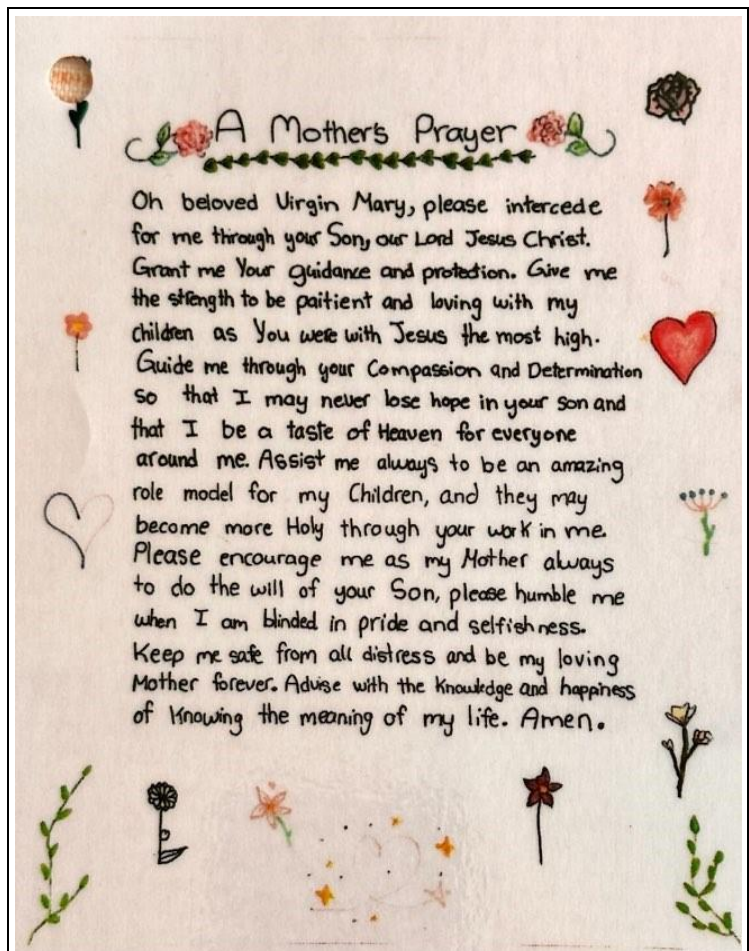 A Mother's Prayer
Oh beloved Virgin Mary, please intercede
for me through your Son, our Lord Jesus Christ.
Grant me Your guidance and protection. Give me
the strength to be paitient and loving with my
children as You were with Jesus the most high.
Guide me through your Compassion and Determination
so that I may never lose hope in your son and
that I be a taste of Heaven for everyone
around me. Assist me always to be an amazing
role model for my Children, and they may
become more Holy through your work in me.
Please encourage me as my Mother always
to do the will of your Son, please humble me
when I am blinded in pride and selfishness.
Keep me safe from all distress and be my loving
Mother forever. Advise with the Knowledge and happiness
of Knowing the meaning of my life. Amen.